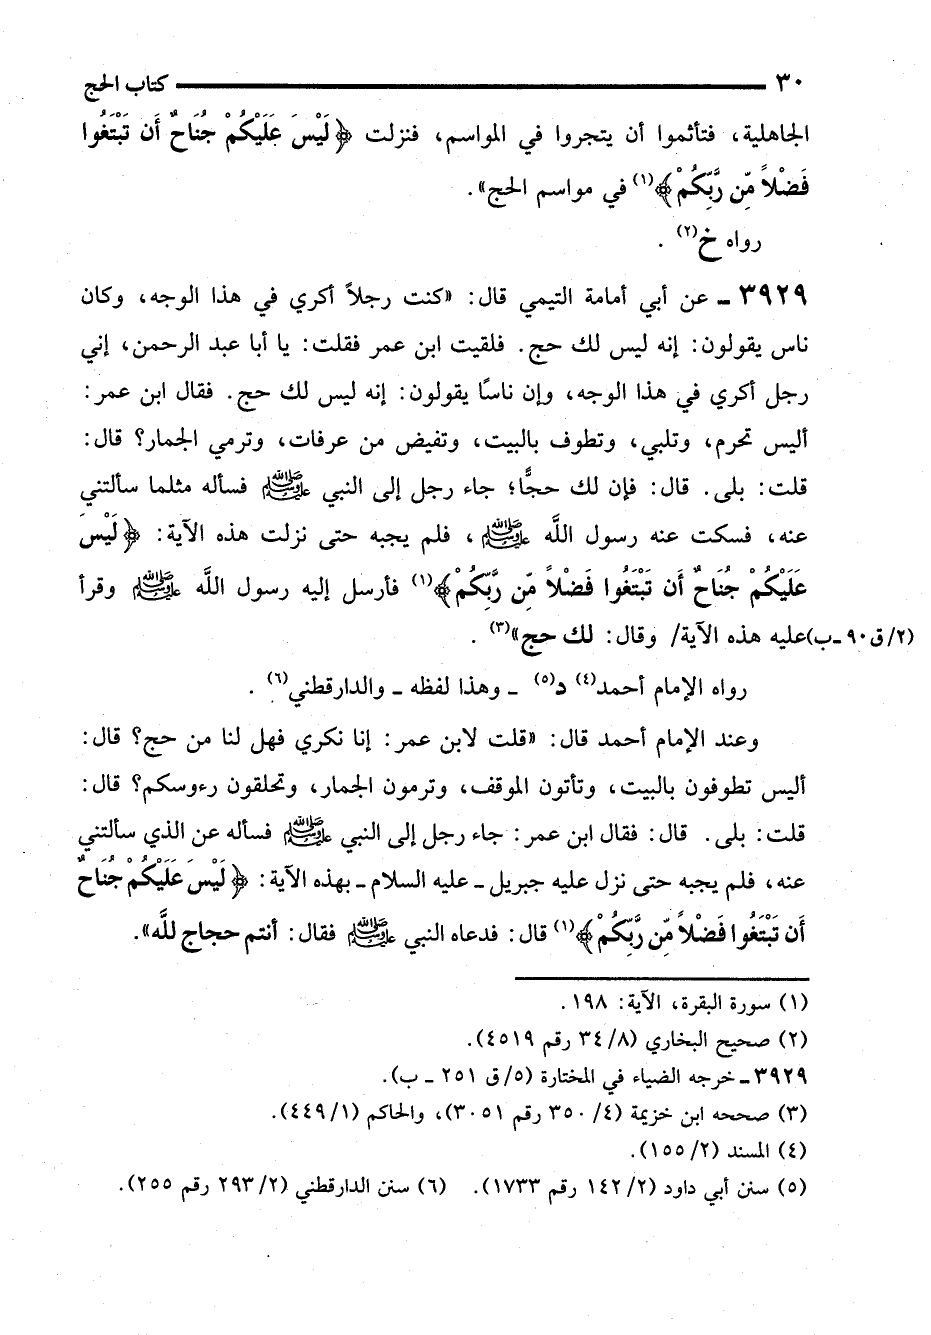 ٣٠ كتاب الحج
الجاهلية، فتأثموا أن يتجروا في المواسم، فنزلت ﴿لَيْسَ عَلَيْكُمْ جُنَاحٌ أَن تَبْتَغُوا
فَضْلاً مِّن رَّبِّكُمْ﴾(١) في مواسم الحج».
رواه خ(٢) .
٣٩٢٩ ـ عن أبي أمامة التيمي قال: «كنت رجلاً أكري في هذا الوجه، وكان
ناس يقولون: إنه ليس لك حج. فلقيت ابن عمر فقلت: يا أبا عبد الرحمن، إني
رجل أكري في هذا الوجه، وإن ناسًا يقولون: إنه ليس لك حج. فقال ابن عمر:
أليس تحرم، وتلبي، وتطوف بالبيت، وتفيض من عرفات، وترمي الجمار؟ قال:
قلت: بلى. قال: فإن لك حجًّا؛ جاء رجل إلى النبي ﷺ فسأله مثلما سألتني
عنه، فسكت عنه رسول اللَّه ﷺ، فلم يجبه حتى نزلت هذه الآية: ﴿لَيْسَ
عَلَيْكُمْ جُنَاحٌ أَن تَبْتَغُوا فَضْلاً مِّن رَّبِّكُمْ﴾(١) فأرسل إليه رسول اللَّه ﷺ وقرأ
(٢/ق٩٠ـب)عليه هذه الآية/ وقال: لك حج»(٣) .
رواه الإمام أحمد(٤) د(٥) ـ وهذا لفظه ـ والدارقطني(٦) .
وعند الإمام أحمد قال: «قلت لابن عمر: إنا نكري فهل لنا من حج؟ قال:
أليس تطوفون بالبيت، وتأتون الموقف، وترمون الجمار، وتحلقون رءوسكم؟ قال:
قلت: بلى. قال: فقال ابن عمر: جاء رجل إلى النبي ﷺ فسأله عن الذي سألتني
عنه، فلم يجبه حتى نزل عليه جبريل ـ عليه السلام ـ بهذه الآية: ﴿لَيْسَ عَلَيْكُمْ جُنَاحٌ
أَن تَبْتَغُوا فَضْلاً مِّن رَّبِّكُمْ﴾(١) قال: فدعاه النبي ﷺ فقال: أنتم حجاج للَّه».
(١) سورة البقرة، الآية: ١٩٨ .
(٢) صحيح البخاري (٣٤/٨ رقم ٤٥١٩).
٣٩٢٩ ـ خرجه الضياء في المختارة (٥/ق ٢٥١ ـ ب).
(٣) صححه ابن خزيمة (٤/ ٣٥٠ رقم ٣٠٥١)، والحاكم (٤٤٩/١).
(٤) المسند (١٥٥/٢).
(٥) سنن أبي داود (١٤٢/٢ رقم ١٧٣٣). (٦) سنن الدارقطني (٢٩٣/٢ رقم ٢٥٥).